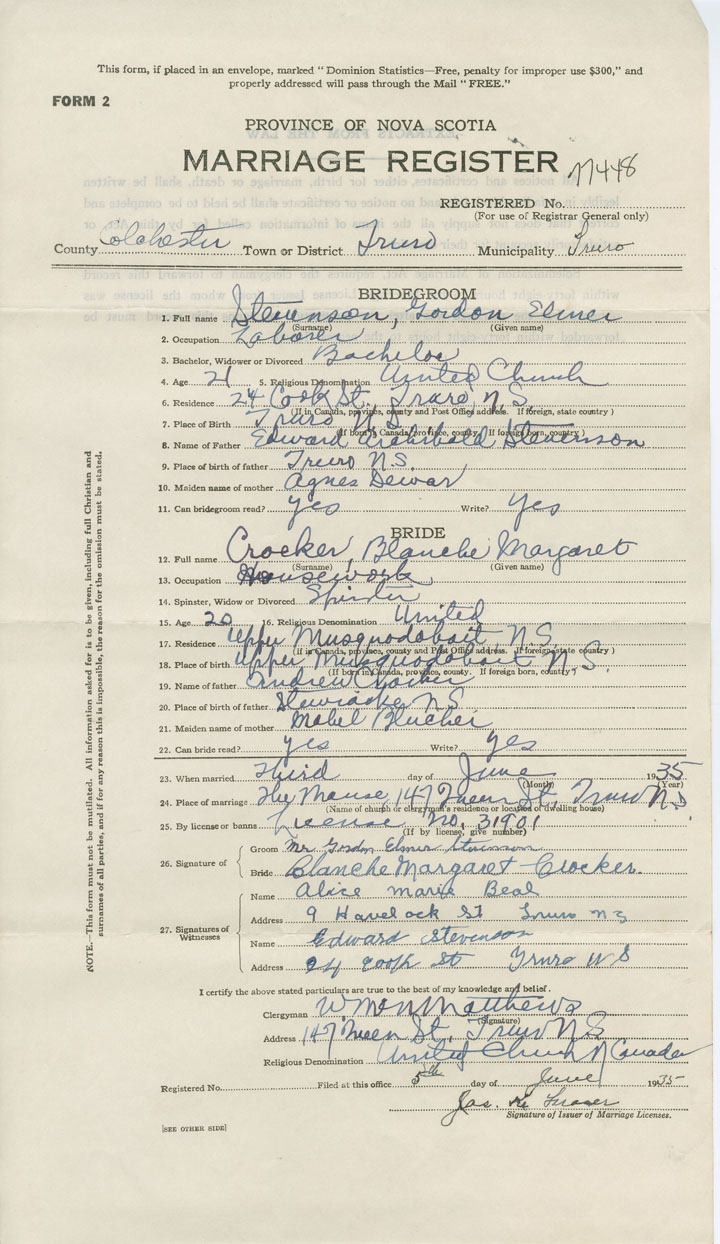 This form, if placed in an envelope, marked "Dominion Statistics—Free, penalty for improper use $300," and
properly addressed will pass through the Mail "FREE."
FORM 2
PROVINCE OF NOVA SCOTIA
MARRIAGE REGISTER
REGISTERED No.
(For use of Registrar General only)
County Colchester Town or District Truro Municipality Truro
BRIDEGROOM
1. Full name Stevenson, Gordon Elmer
(Surname) (Given name)
2. Occupation Laborer
3. Bachelor, Widower or Divorced Bachelor
4. Age 21 5. Religious Denomination United Church
6. Residence 24 Cook St. Truro N.S.
(If in Canada, province, county and Post Office address. If foreign, state county)
7. Place of Birth Truro N.S.
(If born in Canada, province, county. If foreign born, county)
8. Name of Father Edward Archibald Stevenson
9. Place of birth of father Truro N.S.
10. Maiden name of mother Agnes Dewar
11. Can bridegroom read? yes Write? yes
BRIDE
12. Full name Crocker, Blanche Margaret
(Surname) (Given name)
13. Occupation Housework
14. Spinster, Widow or Divorced Spinster
15. Age 20 16. Religious Denomination United
17. Residence Upper Musquodoboit, N.S.
(If in Canada, province, county and Post Office address. If foreign state county)
18. Place of birth Upper Musquodoboit N.S.
(If born in Canada, province, county. If foreign born, county)
19. Name of father Andrew Crocker
20. Place of birth of father Stewiacke N.S.
21. Maiden name of mother Mabel
22. Can bride read? yes Write? yes
23. When married Third day of June 1935
(Month) (Year)
24. Place of marriage The Manse, 147 Queen St, Truro N.S
(Name of church or clergyman's residence or location of dwelling house)
25. By license or banns License No. 31901
(If by license, give number)
26. Signature of
Groom Mr Gordon Elmer Stevenson
Bride Blanche Margaret Crocker.
27. Signatures of
Witnesses
Name Alice Marie Beal
Address 9 Havelock St Truro NS
Name Edward Stevenson
Address 24 Cook St Truro N S
I certify the above stated particulars are true to the best of my knowledge and belief.
Clergyman Matthews
(Signature)
Address 147 Queen St, Truro N.S
Religious Denomination United Church of Canada
Registered No. Filed at this office 5th day of June 1935
Jas. Fraser
Signature of Issuer of Marriage Licenses.
[SEE OTHER SIDE]
NOTE.—This form must not be mutilated. All information asked for is to be given, including full Christian and
surnames of all parties, and if for any reason this is impossible, the reason for the omission must be stated.